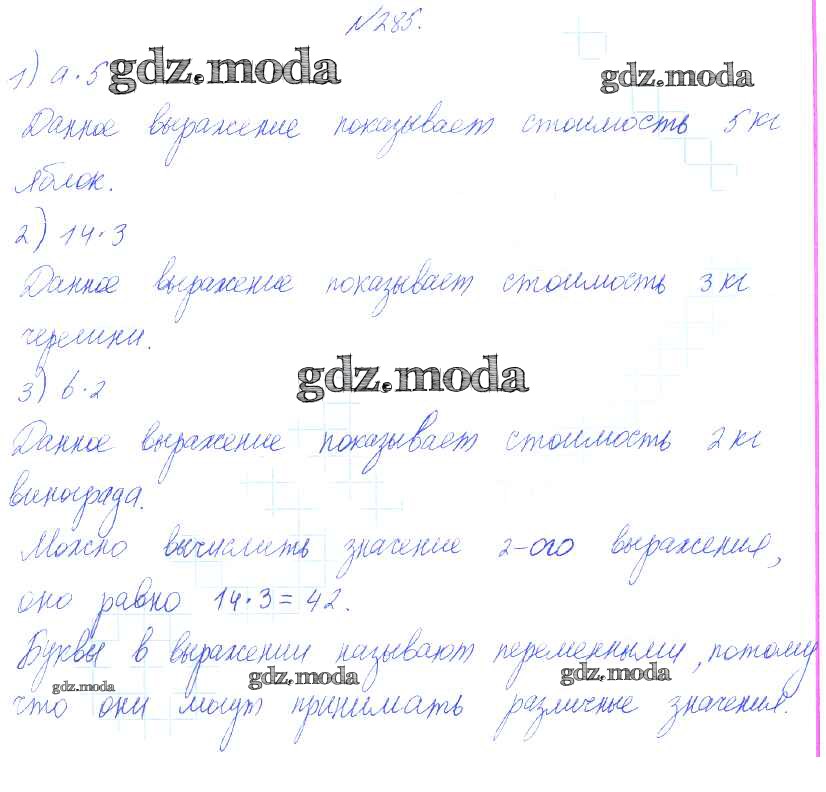 №285.
1) a·5 gdz.moda gdz.moda
Данное выражение показывает стоимость 5 кг
яблок.
2) 14·3
Данное выражение показывает стоимость 3 кг
черешни.
gdz.moda
3) b·2
Данное выражение показывает стоимость 2 кг
винограда.
Можно вычислить значение 2-ого выражения,
оно равно 14·3=42.
Буквы в выражении называют переменными, потому
gdz.moda gdz.moda gdz.moda
что они могут принимать различные значения.